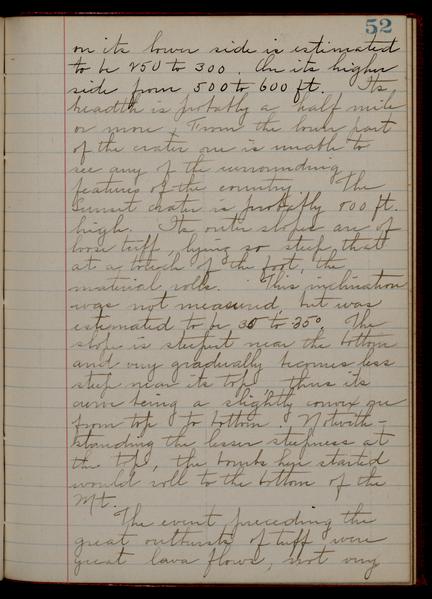 52
on its lower side is estimated
to be 250 to 300. On its higher
side from 500 to 600 ft. Its
breadth is probably a half mile
or more. From the lower part
of the crater one is unable to
see any of the surrounding
features of the country. The
Sunset crater is probably 800 ft.
high. Its outer slopes are of
loose tuff, lying so steep that
at a touch of the foot, the
material rolls. This inclination
was not measured, but was
estimated to be 30 to 35°. The
slope is steepest near the bottom
and very gradually becomes less
steep near its top, thus its
curve being a slightly convex one
from top to bottom. Notwith-
standing the lesser steepness at
the top, the bombs here started
would roll to the bottom of the
Mt.
The event preceding the
great outbursts of tuff were
great lava flows, not very